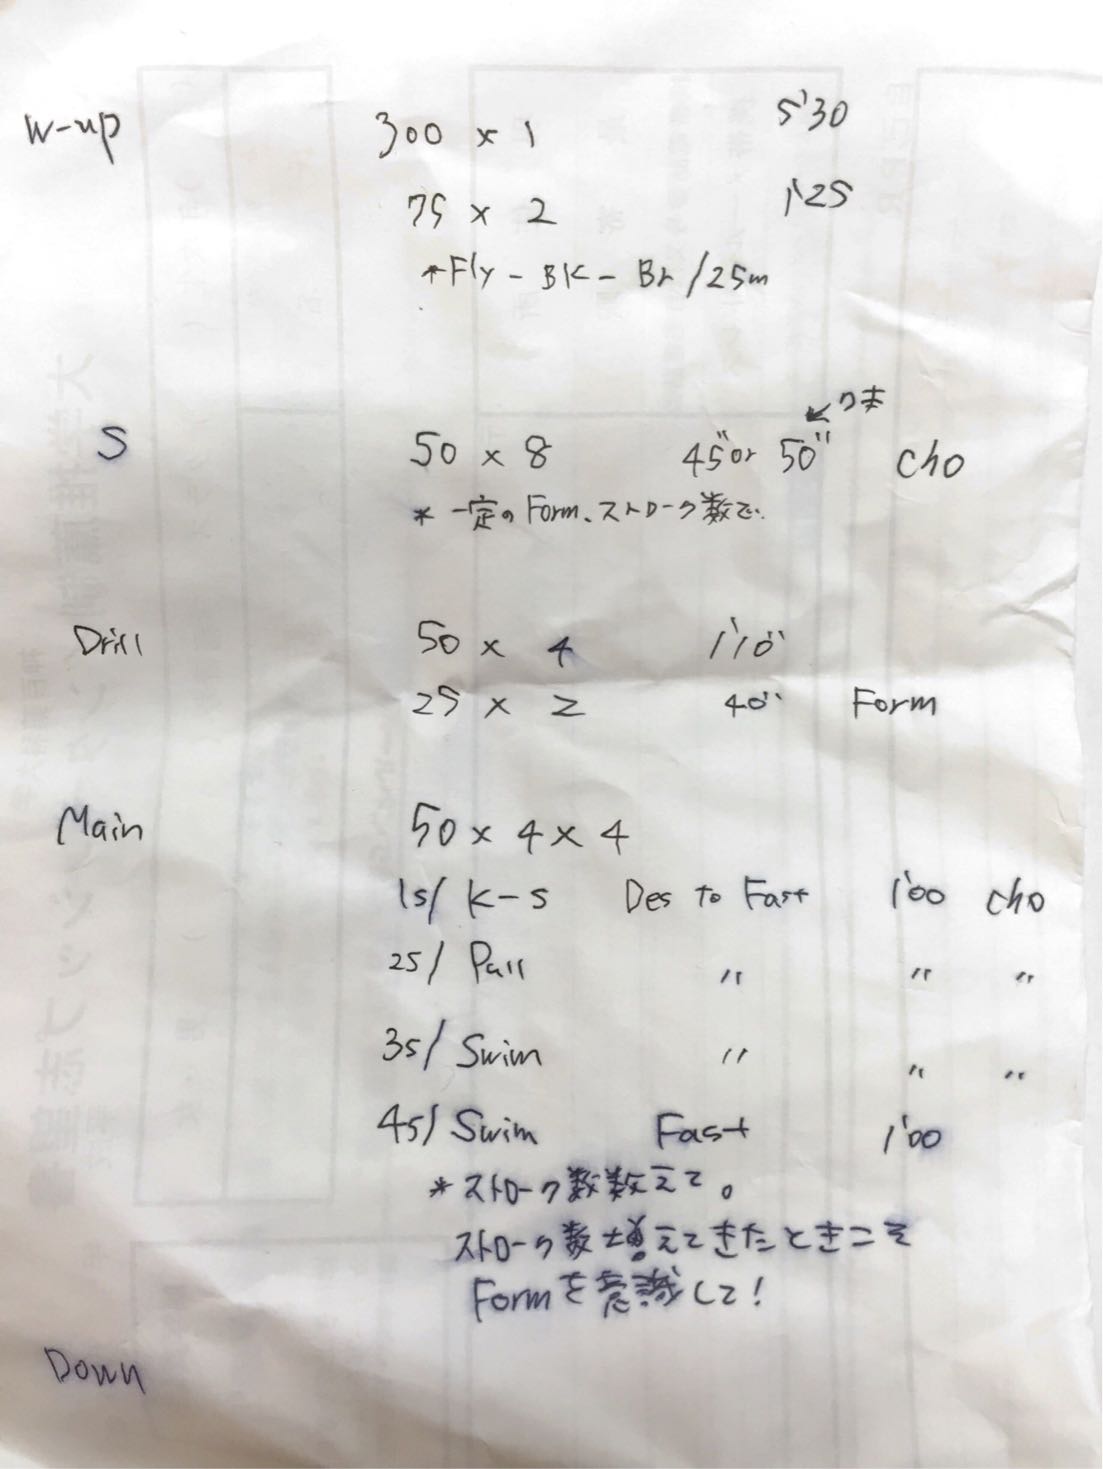 W-up 300 × 1 5'30
75 × 2 1'25
*Fly - BK - Br /25m
S 50 × 8 45" or 50" Cho
* 一定の Form、ストローク数で.
Drill 50 × 4 1'10"
25 × 2 40" Form
Main 50 × 4 × 4
1s/ K-S Des to Fast 1'00 Cho
2s/ Pull " " "
3s/ Swim " " "
4s/ Swim Fast 1'00
* ストローク数数えて。
ストローク数増えてきたときこそ
Formを意識して!
Down